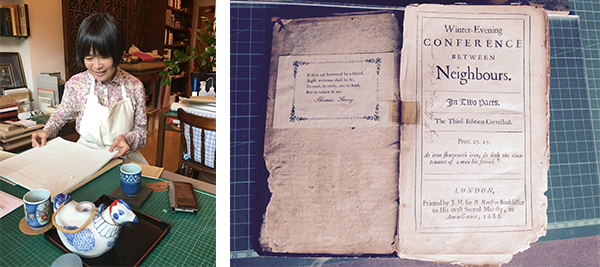 If thou art borrowed by a friend,
Right welcome shall he be,
To read, to study, not to lend,
But to return to me.
Thomas Story
Winter-Evening
CONFERENCE
BETWEEN
Neighbours.
In Two Parts.
The Third Edition Corrected.
Prov. 27. 17.
As iron sharpeneth iron, so doth the coun-
tenance of a man his friend.
LONDON,
Printed by J. M. for R. Royston Bookseller
to His most Sacred Majesty, at
Amen-Corner, 1686.